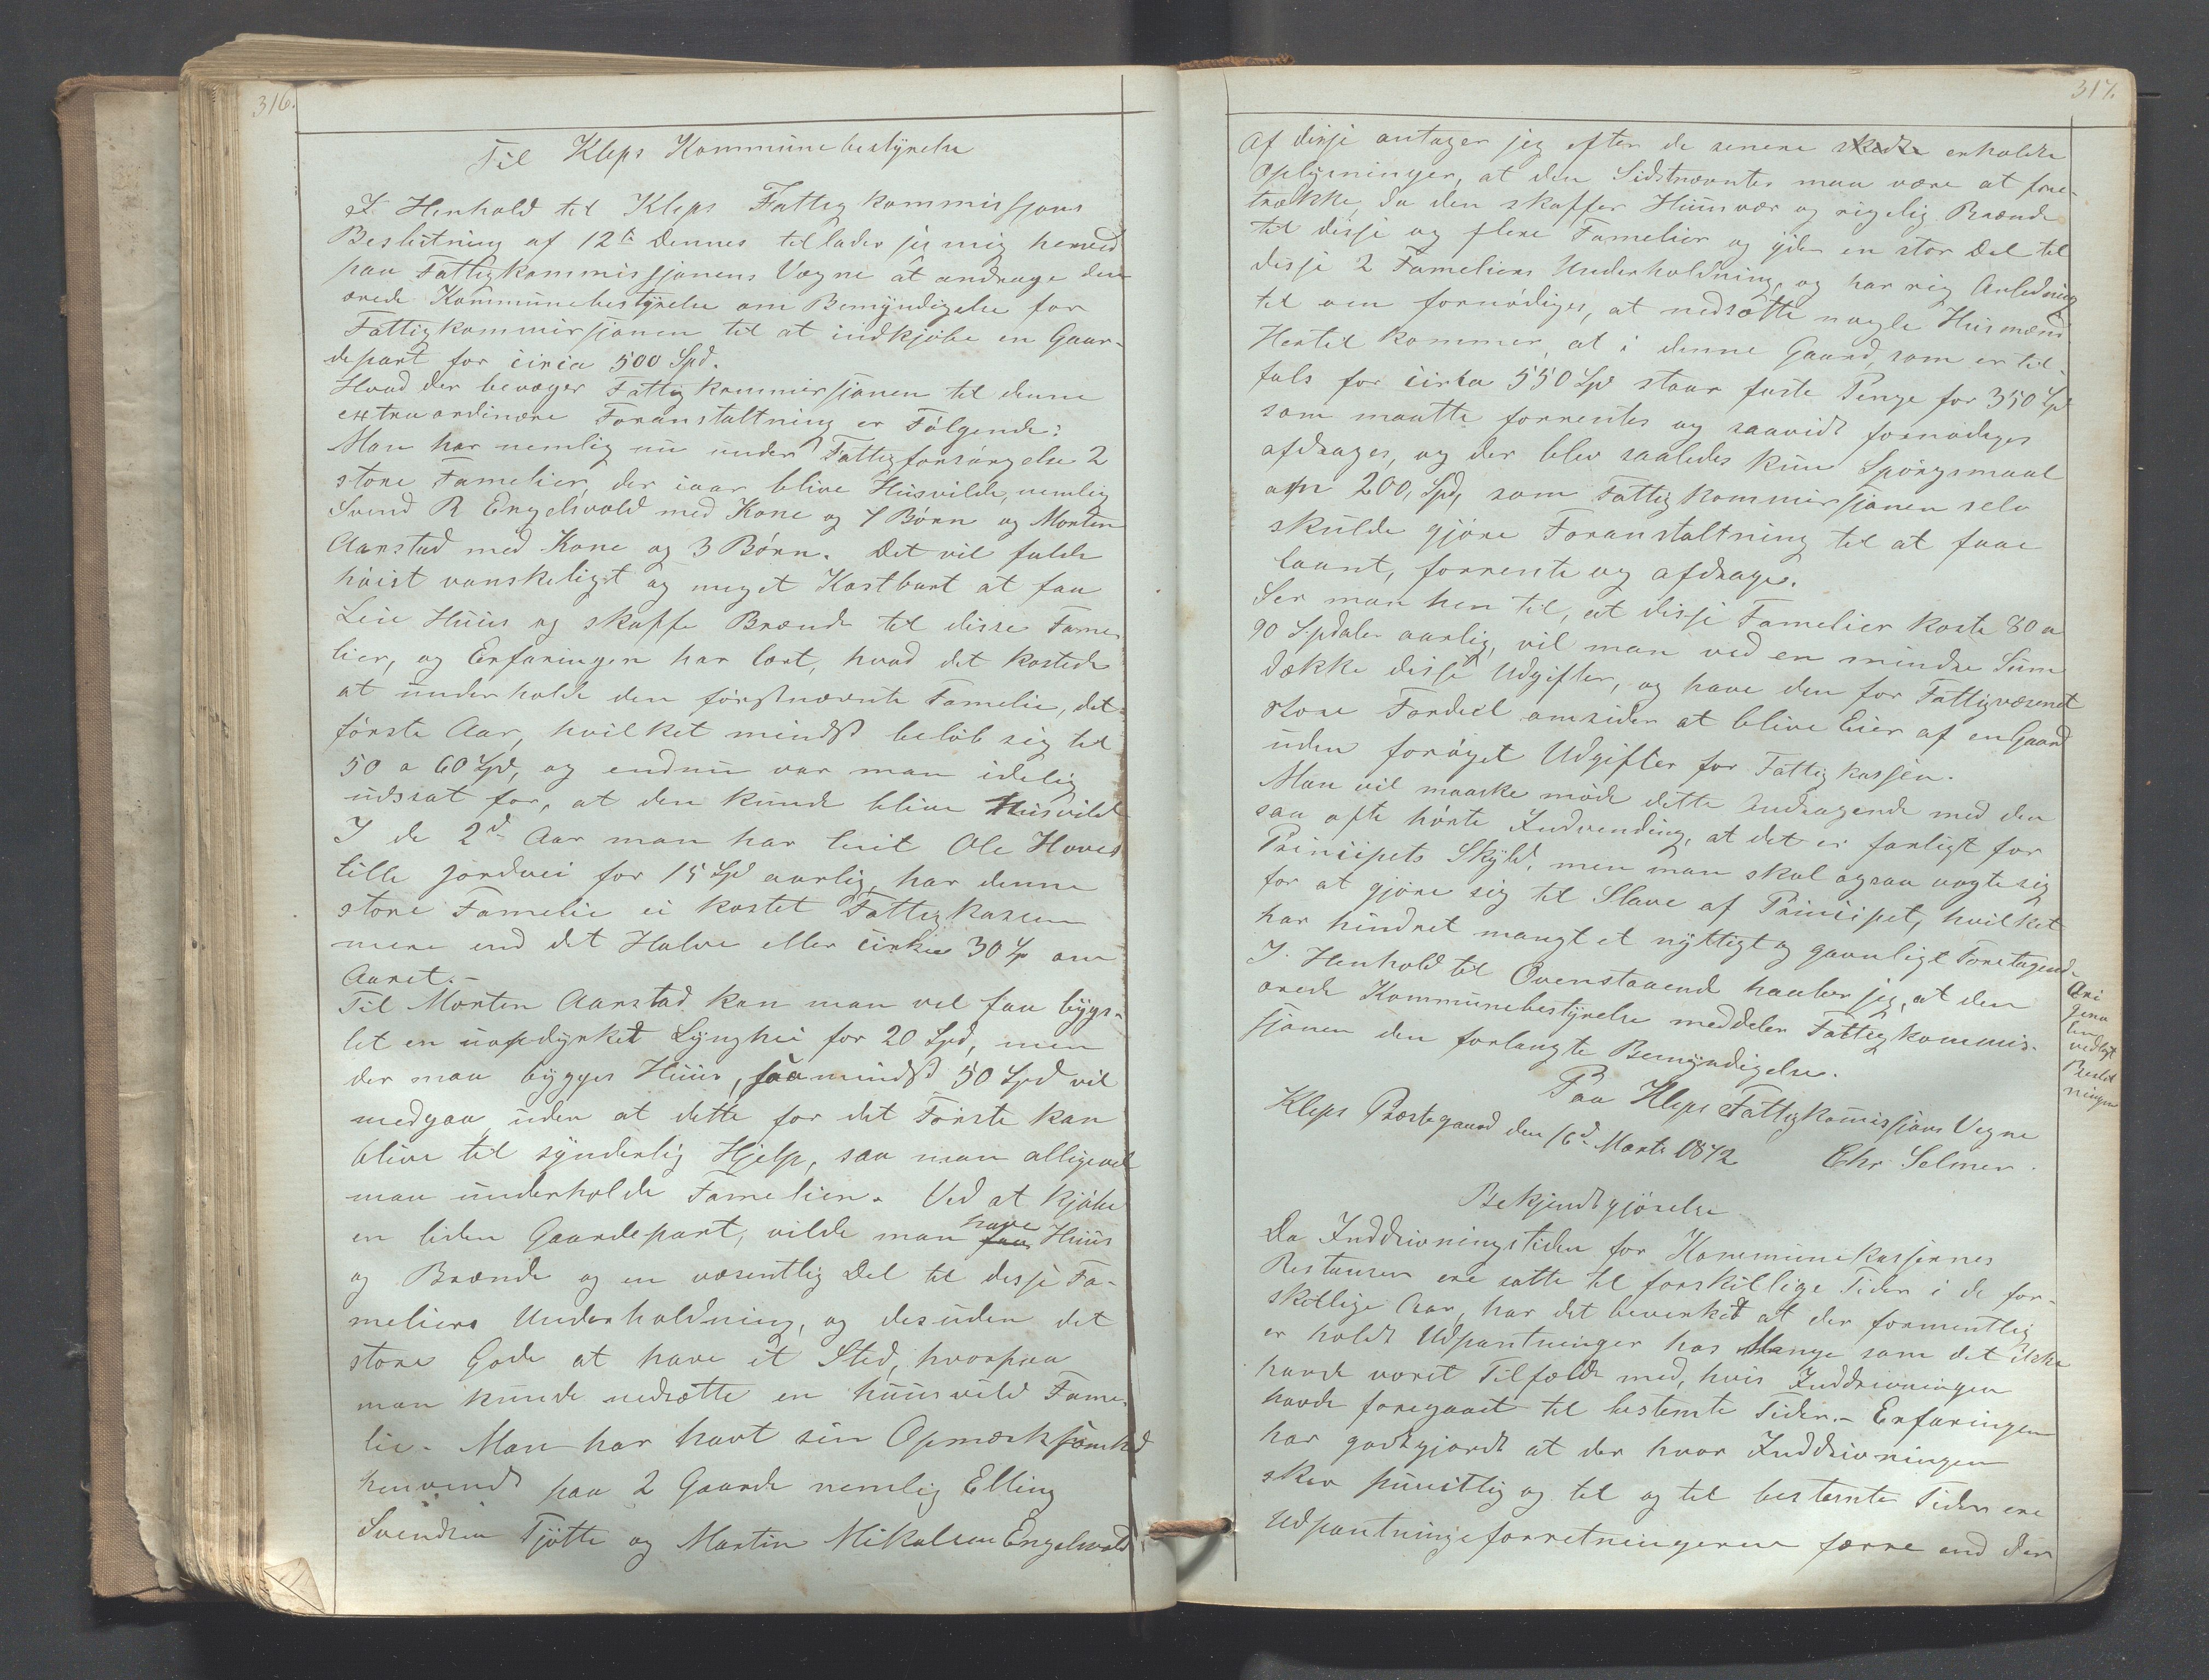 316.
Til Kleps Kommunebestyrelse
I Henhold til Kleps Fattigkommissjons
Beslutning af 12te Dennes tillader jeg mig herved
paa Fattigkommissjonens Vegne at andrage den
ærede Kommunebestyrelse om Bemyndigelse for
Fattigkommissjonen til at indkjøbe en Gaar-
depart for circa 500 Spd.
Hvad der bevæger Fattigkommissjonen til denne
extraordinære Foranstaltning er Følgende:
Man har nemlig nu under Fattigforsørgelse 2
store Familier, der iaar blive Husvilde, nemlig
Svend R Engelsvold med Kone og 7 Børn og Morten
Aarstad med Kone og 3 Børn. Det vil falde
høist vanskeligt og meget Kostbart at faa
Leie Huus og skaffe Brænde til disse Fame-
lier, og Erfaringen har lært, hvad det kostede
at underholde den førstnævnte Famelie, det
første Aar, hvilket mindst beløb sig til
50 a 60 Spd, og endnu var man idelig
udssat for, at den kunde blive Huusvild
I de 2de Aar man har leiet Ole Hoves
lille Jordvei for 15 Spd aarlig, har denne
store Famelie ei kostet Fattigkassen
mere end det Halve eller cirka 30 Sp om
Aaret.-
Til Morten Aarstad kan man vel faa bygs-
let en uopdyrket Lynghei for 20 Spd, men
der maa bygges Huus, saa mindst 50 Spd vil
medgaa uden at dette for det Første kan
blive til synderlig Hjelp, saa man alligevel
maa underholde Familien. Ved at kjøbe
en liden Gaardepart, vilde man faa have Huus
og Brænde og en væsentlig Del til dissje Fa-
meliers Underholdning, og desuden det
store Gode at have et Sted, hvorpaa
man kunde nedsætte en huusvild Fame-
lie. Man har havt sin Opmærksomhed
henvendt paa 2 Gaarde nemlig Elling
Svendsen Tjøtte og Martin Mikalsen Engelsvold
317.
Af dissje antager jeg efter de senere skedte erholdte
Oplysninger, at den Sidstnævntes maa være at fore-
trække, da den skaffer Huusvær og rigelig Brænde
til dissje og flere Famelier og yder en stor Del til
dissje 2 Fameliers Underholdning, og har rig Anledning
til om fornødiges, at nedsætte nogle Husmænd.
Hertil kommer, at i denne Gaard, som er til-
fals for cirka 550 Spd staar faste Penge for 350 Spd
som maatte forrentes og saavidt fornødiges
afdrages, og der blev saaledes kun Spørgsmaal
om 200 Spd, som Fattigkommissjonen selv
skulde gjøre Foranstaltning til at faae
laant, forrente og afdrage.
Ser man hen til, at dissje Famelier koste 80 a
90 Spdaler aarlig, vil man ved en mindre Sum
dække dissje Udgifter, og have den for Fattigvæsenet
store Fordeel omsider at blive Eier af en Gaard
uden forøget Udgifter for Fattigkassjen.
Man vil maaske møde dette Andragende med den
saa ofte hørte Indvending, at det er farligt for
Principets Skyld, men man skal ogsaa vogte sig
for at gjøre sig til Slave af Principet, hvilket
har hindret mangt et nyttigt og gavnligt Foretagende
I Henhold til Ovenstaaend haaber jeg, at den
ærede Kommunebestyrelse meddeler Fattigkommis-
sjonen den forlangte Bemyndigelse.
Ori
gina
len
vedlagt
Beslut
ningen
Paa Kleps Fattigkomissjons Vegne
Kleps Præstegaard den 16de Marts 1872 Chr Selmer.
Bekjendtgjørelse
Da Inddrivningstiden for Kommunekassjernes
Restanser ere satte til forskillige Tider i de for-
skillige Aar, har det bevirket at der formentlig
er holdt Udpantninger hos Mange som det ikke
havde været Tilfælde med, hvis Inddrivningen
havde foregaaet til bestemte Tider.- Erfaringen
har godtgjordt at der hvor Inddrivningen
sker punctlig og til og til bestemte Tider ere
Udpantningsforretningerne færre end der